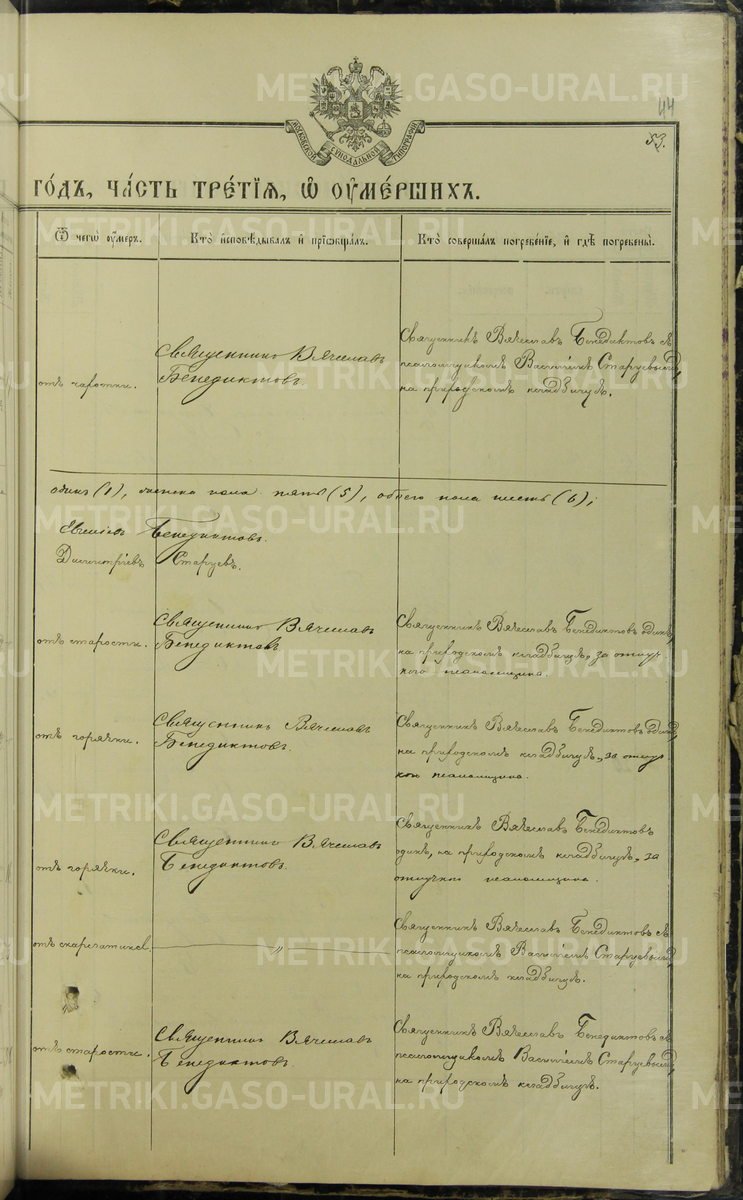 METRIKI.GASO-URAL.RU
44
53.
МОСКОВСКОЙ СѴНОДАЛЬНОЙ ТИПОГРАФІИ
ГО́ДЪ, ЧА́СТЬ ТРЕ́ТІѦ, Ѡ ОУМЕ́РШИХЪ.
Ѿ чегѡ̀ оу҆́меръ.
Кто̀ и҆сповѣ́дывалъ и҆ прїѡбща́лъ.
Кто̀ соверша́лъ погребе́нїе, и҆ гдѣ̀ погребены̀.
отъ
Священникъ Вячеславъ
Бенедиктовъ.
Священникъ Вячеславъ Бенедиктовъ съ
псаломщикомъ Василіемъ Старцевымъ,
на приходскомъ кладбищѣ.
одинъ (1), женска пола пять (5), обоего пола шесть (6);
Бенедиктовъ.
Димитріевъ Старцевъ.
отъ старости.
Священникъ Вячеславъ
Бенедиктовъ
Священникъ Вячеславъ Бенедиктовъ одинъ,
на приходскомъ кладбищѣ, за отлуч
кою псаломщика.
отъ горячки.
Священникъ Вячеславъ
Бенедиктовъ.
Священникъ Вячеславъ Бенедиктовъ одинъ,
на приходскомъ кладбищѣ, за отлуч
кою псаломщика.
отъ горячки.
Священникъ Вячеславъ
Бенедиктовъ.
Священникъ Вячеславъ Бенедиктовъ
одинъ, на приходскомъ кладбищѣ, за
отлучкою псаломщика.
отъ скарлатины
〃
Священникъ Вячеславъ Бенедиктовъ съ
псаломщикомъ Василіемъ Старцевымъ,
на приходскомъ кладбищѣ.
отъ старости.
Священникъ Вячеславъ
Бенедиктовъ.
Священникъ Вячеславъ Бенедиктовъ съ
псаломщикомъ Василіемъ Старцевымъ,
на приходскомъ кладбищѣ.